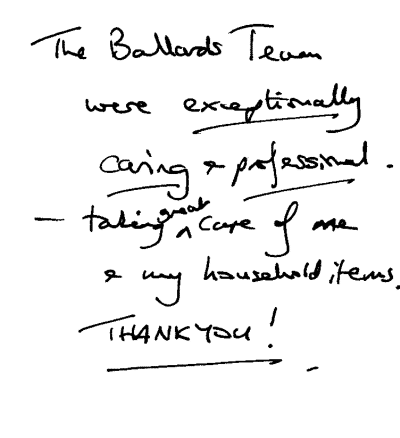 The Ballards Team
were exceptionally
caring & professional.
– taking great care of me
& my household items.
THANK YOU!